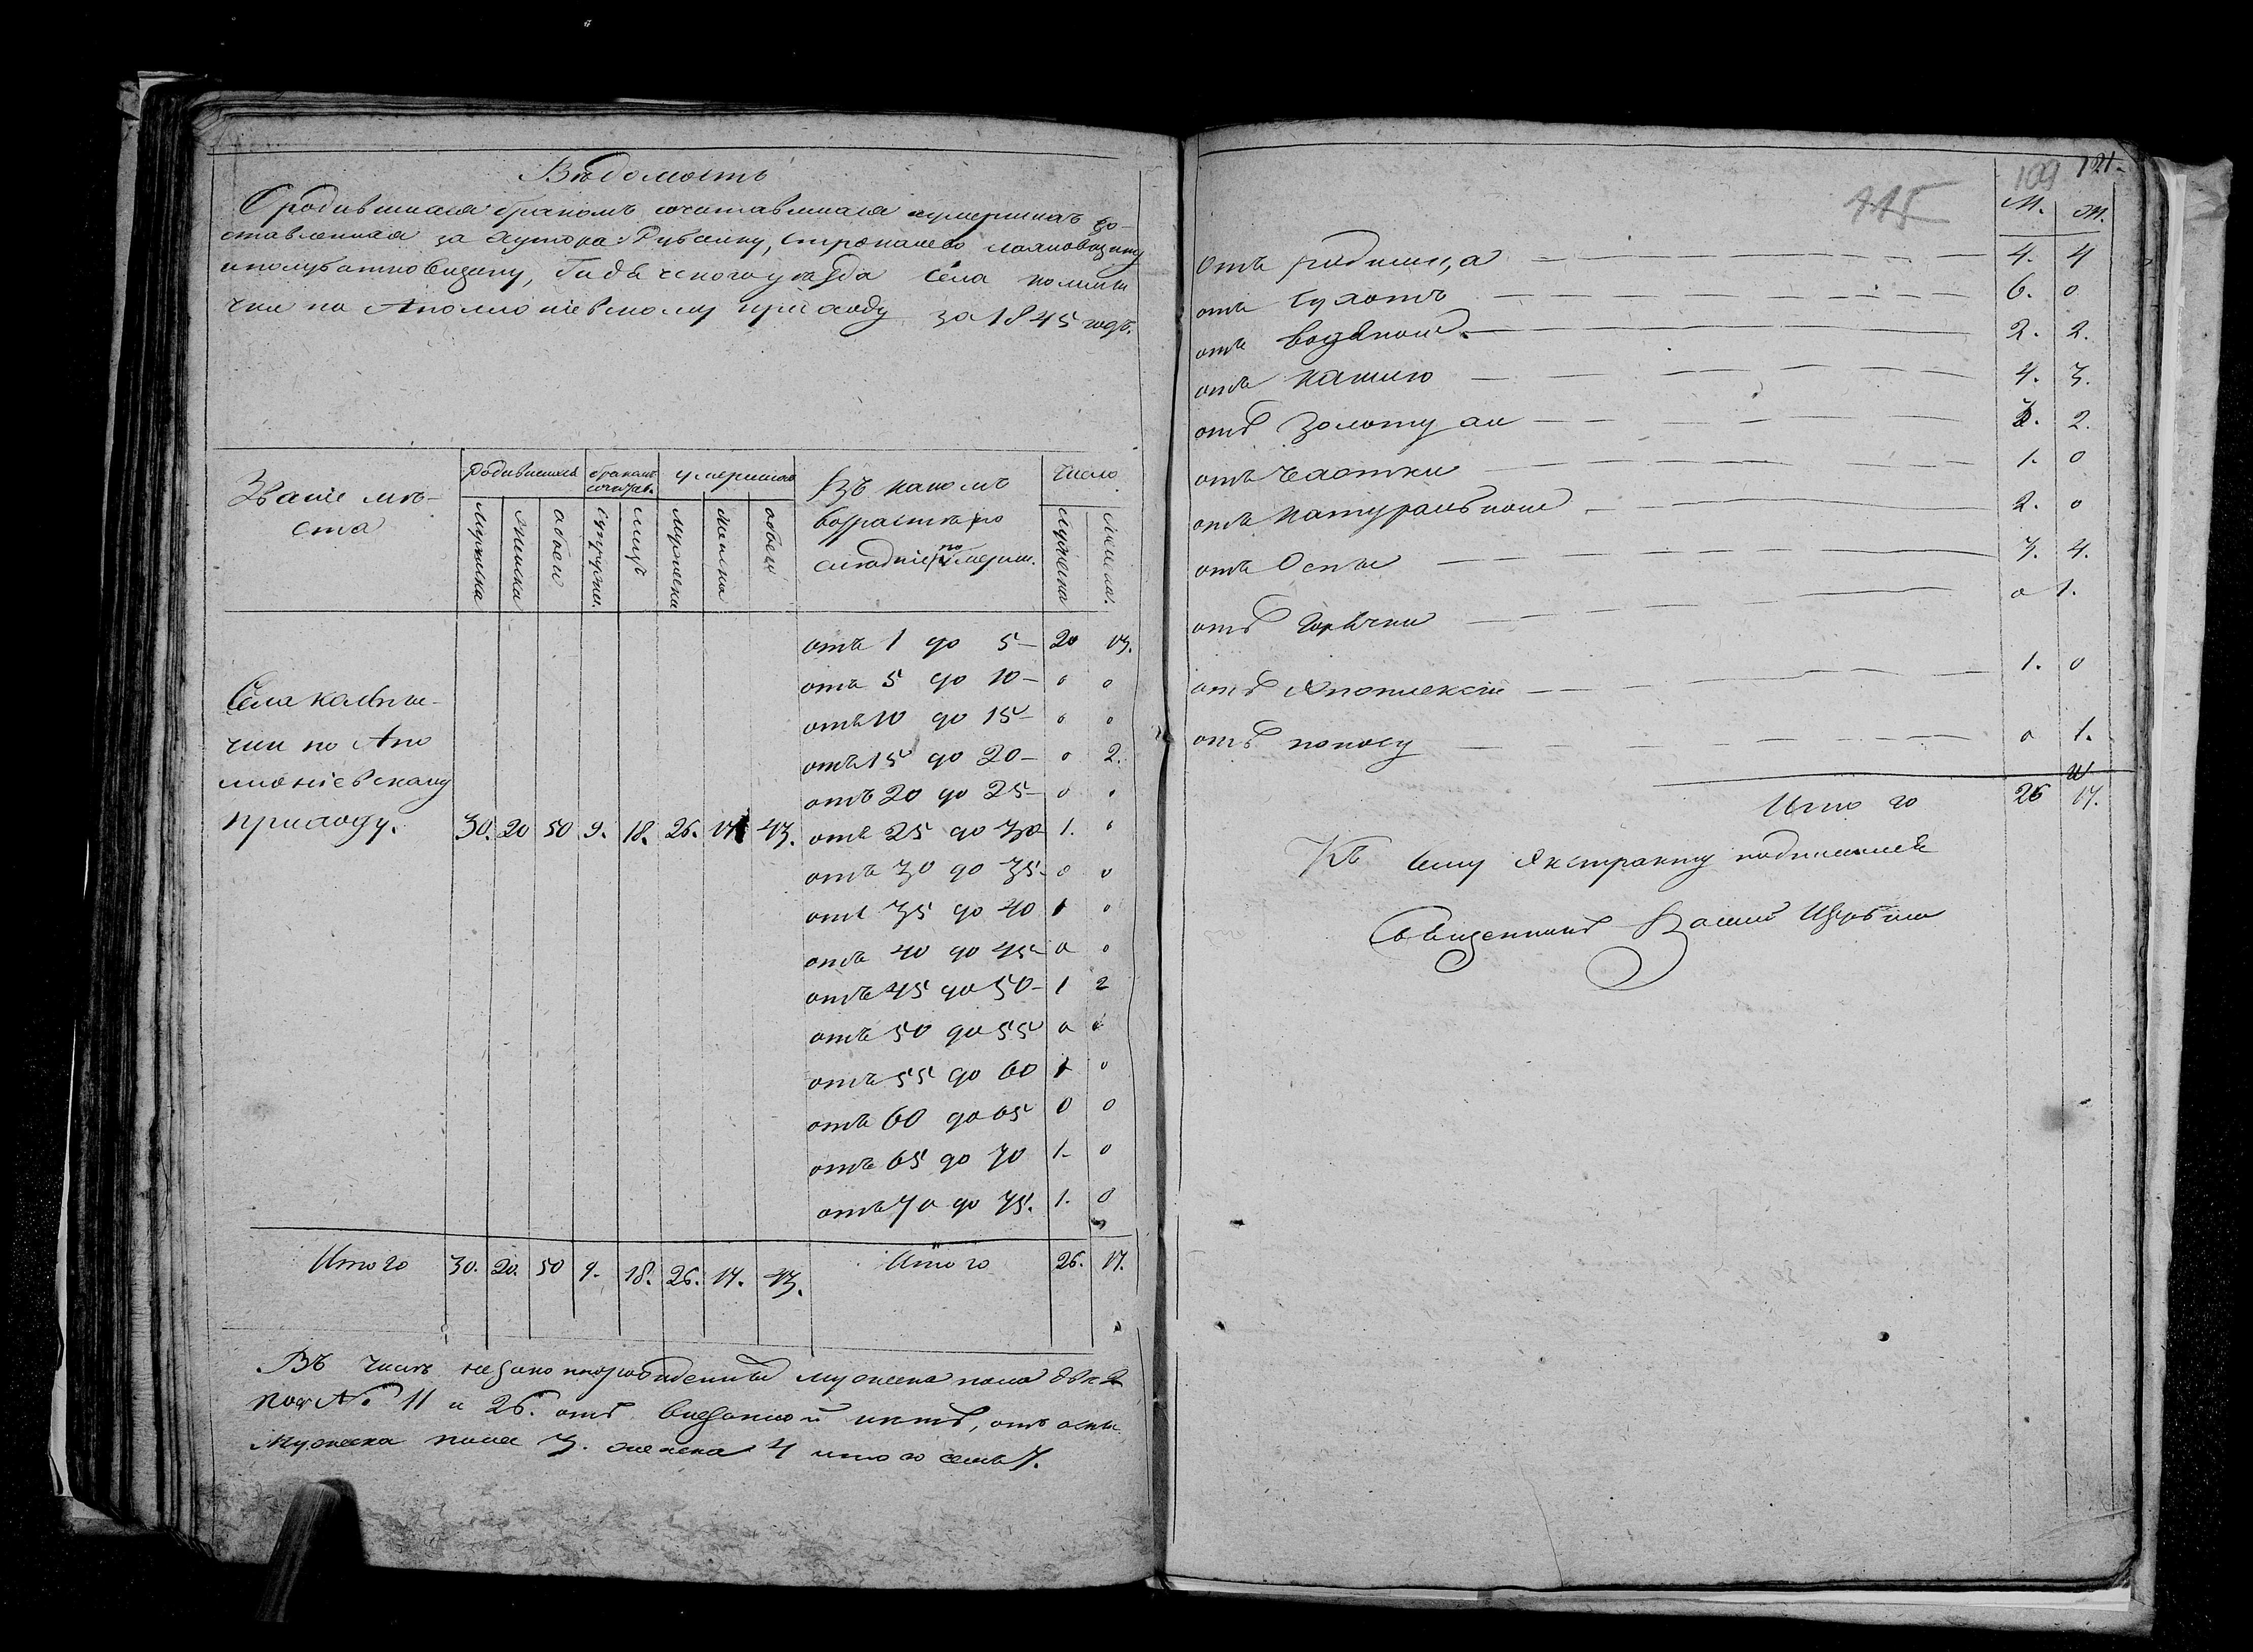 Вѣдомость
О родившихся бракомъ сочетавшихся и умершихъ со-
ставленная за хутора Рубанку,
Гадячского уѣзда Села
по Аполлоніевскому приходу за 1845 годъ.
Званіе мѣ-
ста
родившихся
бракомъ
сочетав.
умершихъ
Въ какомъ
возрастѣ по
число
мужеска
женска
обоего
супруж.
лицъ
мужеска
женска
обоего
мужеска
женска.
отъ 1 до 5 — 20 13.
отъ 5 до 10 — 0 0
отъ 10 до 15 — 0 0
отъ 15 до 20 — 0 2.
отъ 20 до 25 — 0 0
Села
чки по Апо
лоніевскому
приходу. 30. 20 50 9. 18. 26. 17 43. отъ 25 до 30 1. 0
отъ 30 до 35 — 0 0
отъ 35 до 40 1 0
отъ 40 до 45 0 0
отъ 45 до 50 — 1 2
отъ 50 до 55 0 0
отъ 55 до 60 1 0
отъ 60 до 65 0 0
отъ 65 до 70 1. 0
отъ 70 до 75. 1. 0
Итого 30. 20. 50 9. 18. 26. 17. 43. Итого 26. 17.
Въ числѣ мужеска пола
под № 11 и 26. отъ нѣтъ, отъ оспы
мужеска пола 3. женска 4 итого семь 7.
109 121.
115
М. Ж.
отъ родимца — 4. 4
отъ сухотъ — 6. 0
отъ водяной — 2. 2.
отъ кашлю — 4. 3.
отъ золотухи — 2.
отъ чахотки — 1. 0
отъ натуральной — 2. 0
отъ Оспы — 3. 4.
отъ горячки — 0 1.
отъ Апоплексіи — 1. 0
отъ поносу — 0 1.
Итого 26 17.
Къ сему Экстракту подписался
Священникъ Василій Щерба